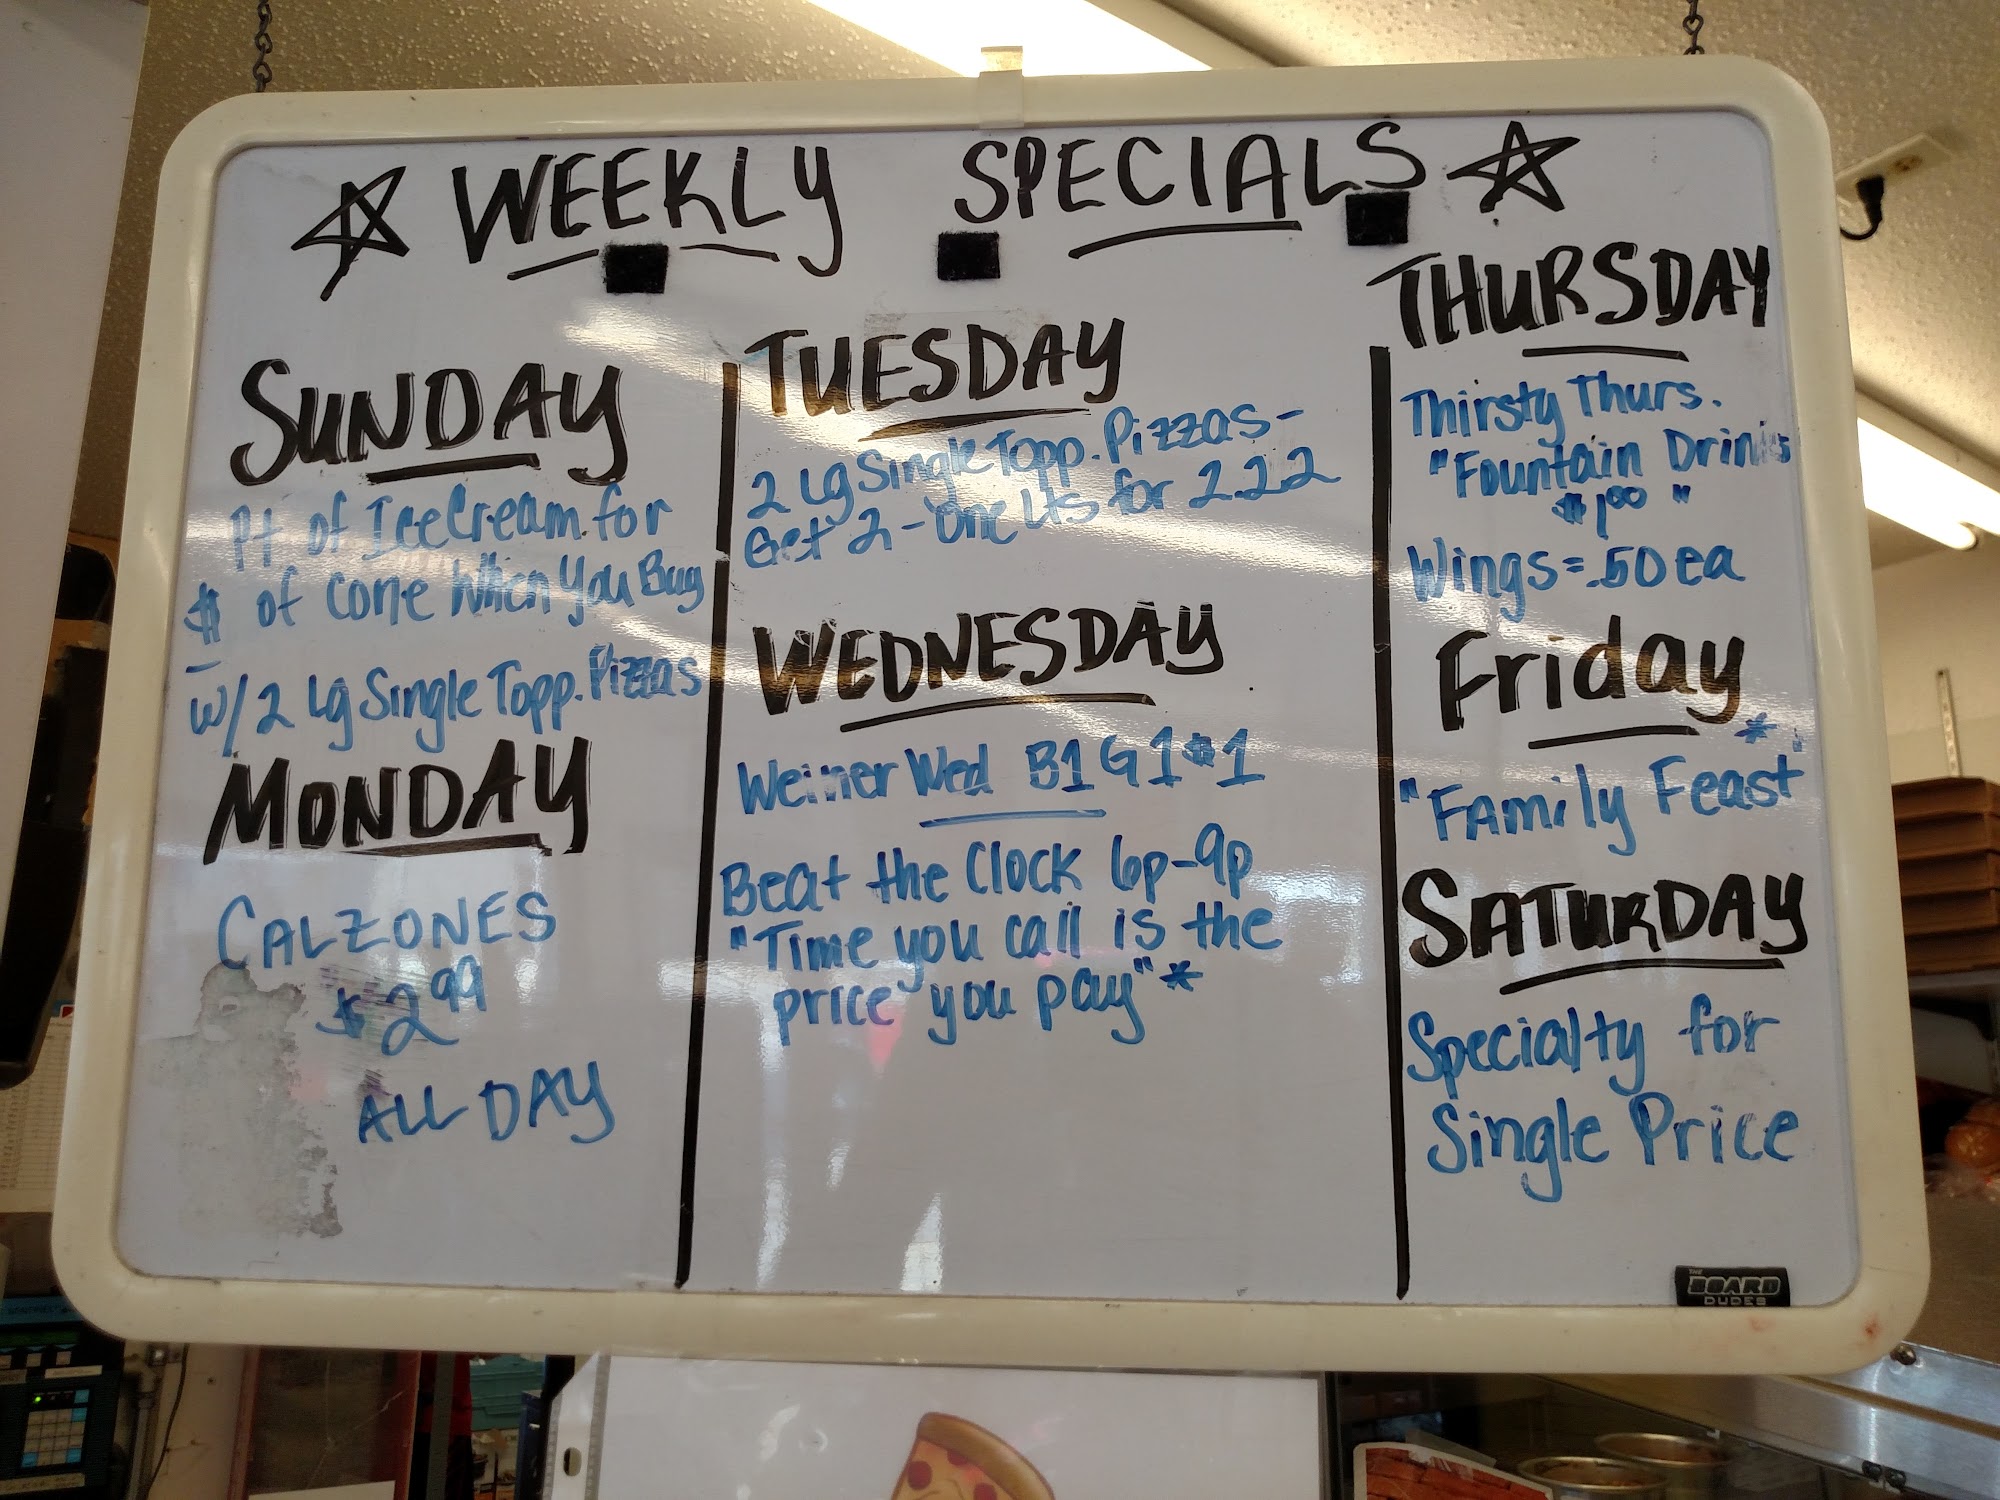 WEEKLY SPECIALS
SUNDAY
Pt of Ice Cream for
$ of Cone When You Buy
w/2 Lg Single Topp. Pizzas
MONDAY
CALZONES
$2.99
ALL DAY
TUESDAY
2 Lg Single Topp. Pizzas-
Get 2 - One Lts for 2.22
WEDNESDAY
Weiner Wed B1 G1 $1
Beat the Clock 6p-9p
"Time you call is the
price you pay" *
THURSDAY
Thirsty Thurs.
"Fountain Drinks
$1.00"
Wings = .50 ea
Friday
*
"Family Feast"
SATURDAY
Specialty for
Single Price
THE
BOARD
DUDES